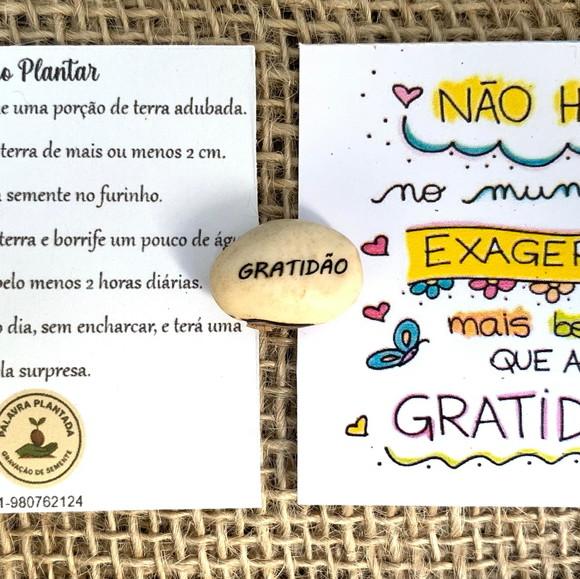 o Plantar
e uma porção de terra adubada.
terra de mais ou menos 2 cm.
semente no furinho.
terra e borrife um pouco de ág
pelo menos 2 horas diárias.
o dia, sem encharcar, e terá uma
la surpresa.
PALAVRA PLANTADA
GRAVAÇÃO DE SEMENTE
1-980762124
GRATIDÃO
NÃO H
no mun
EXAGER
mais be
QUE A
GRATID